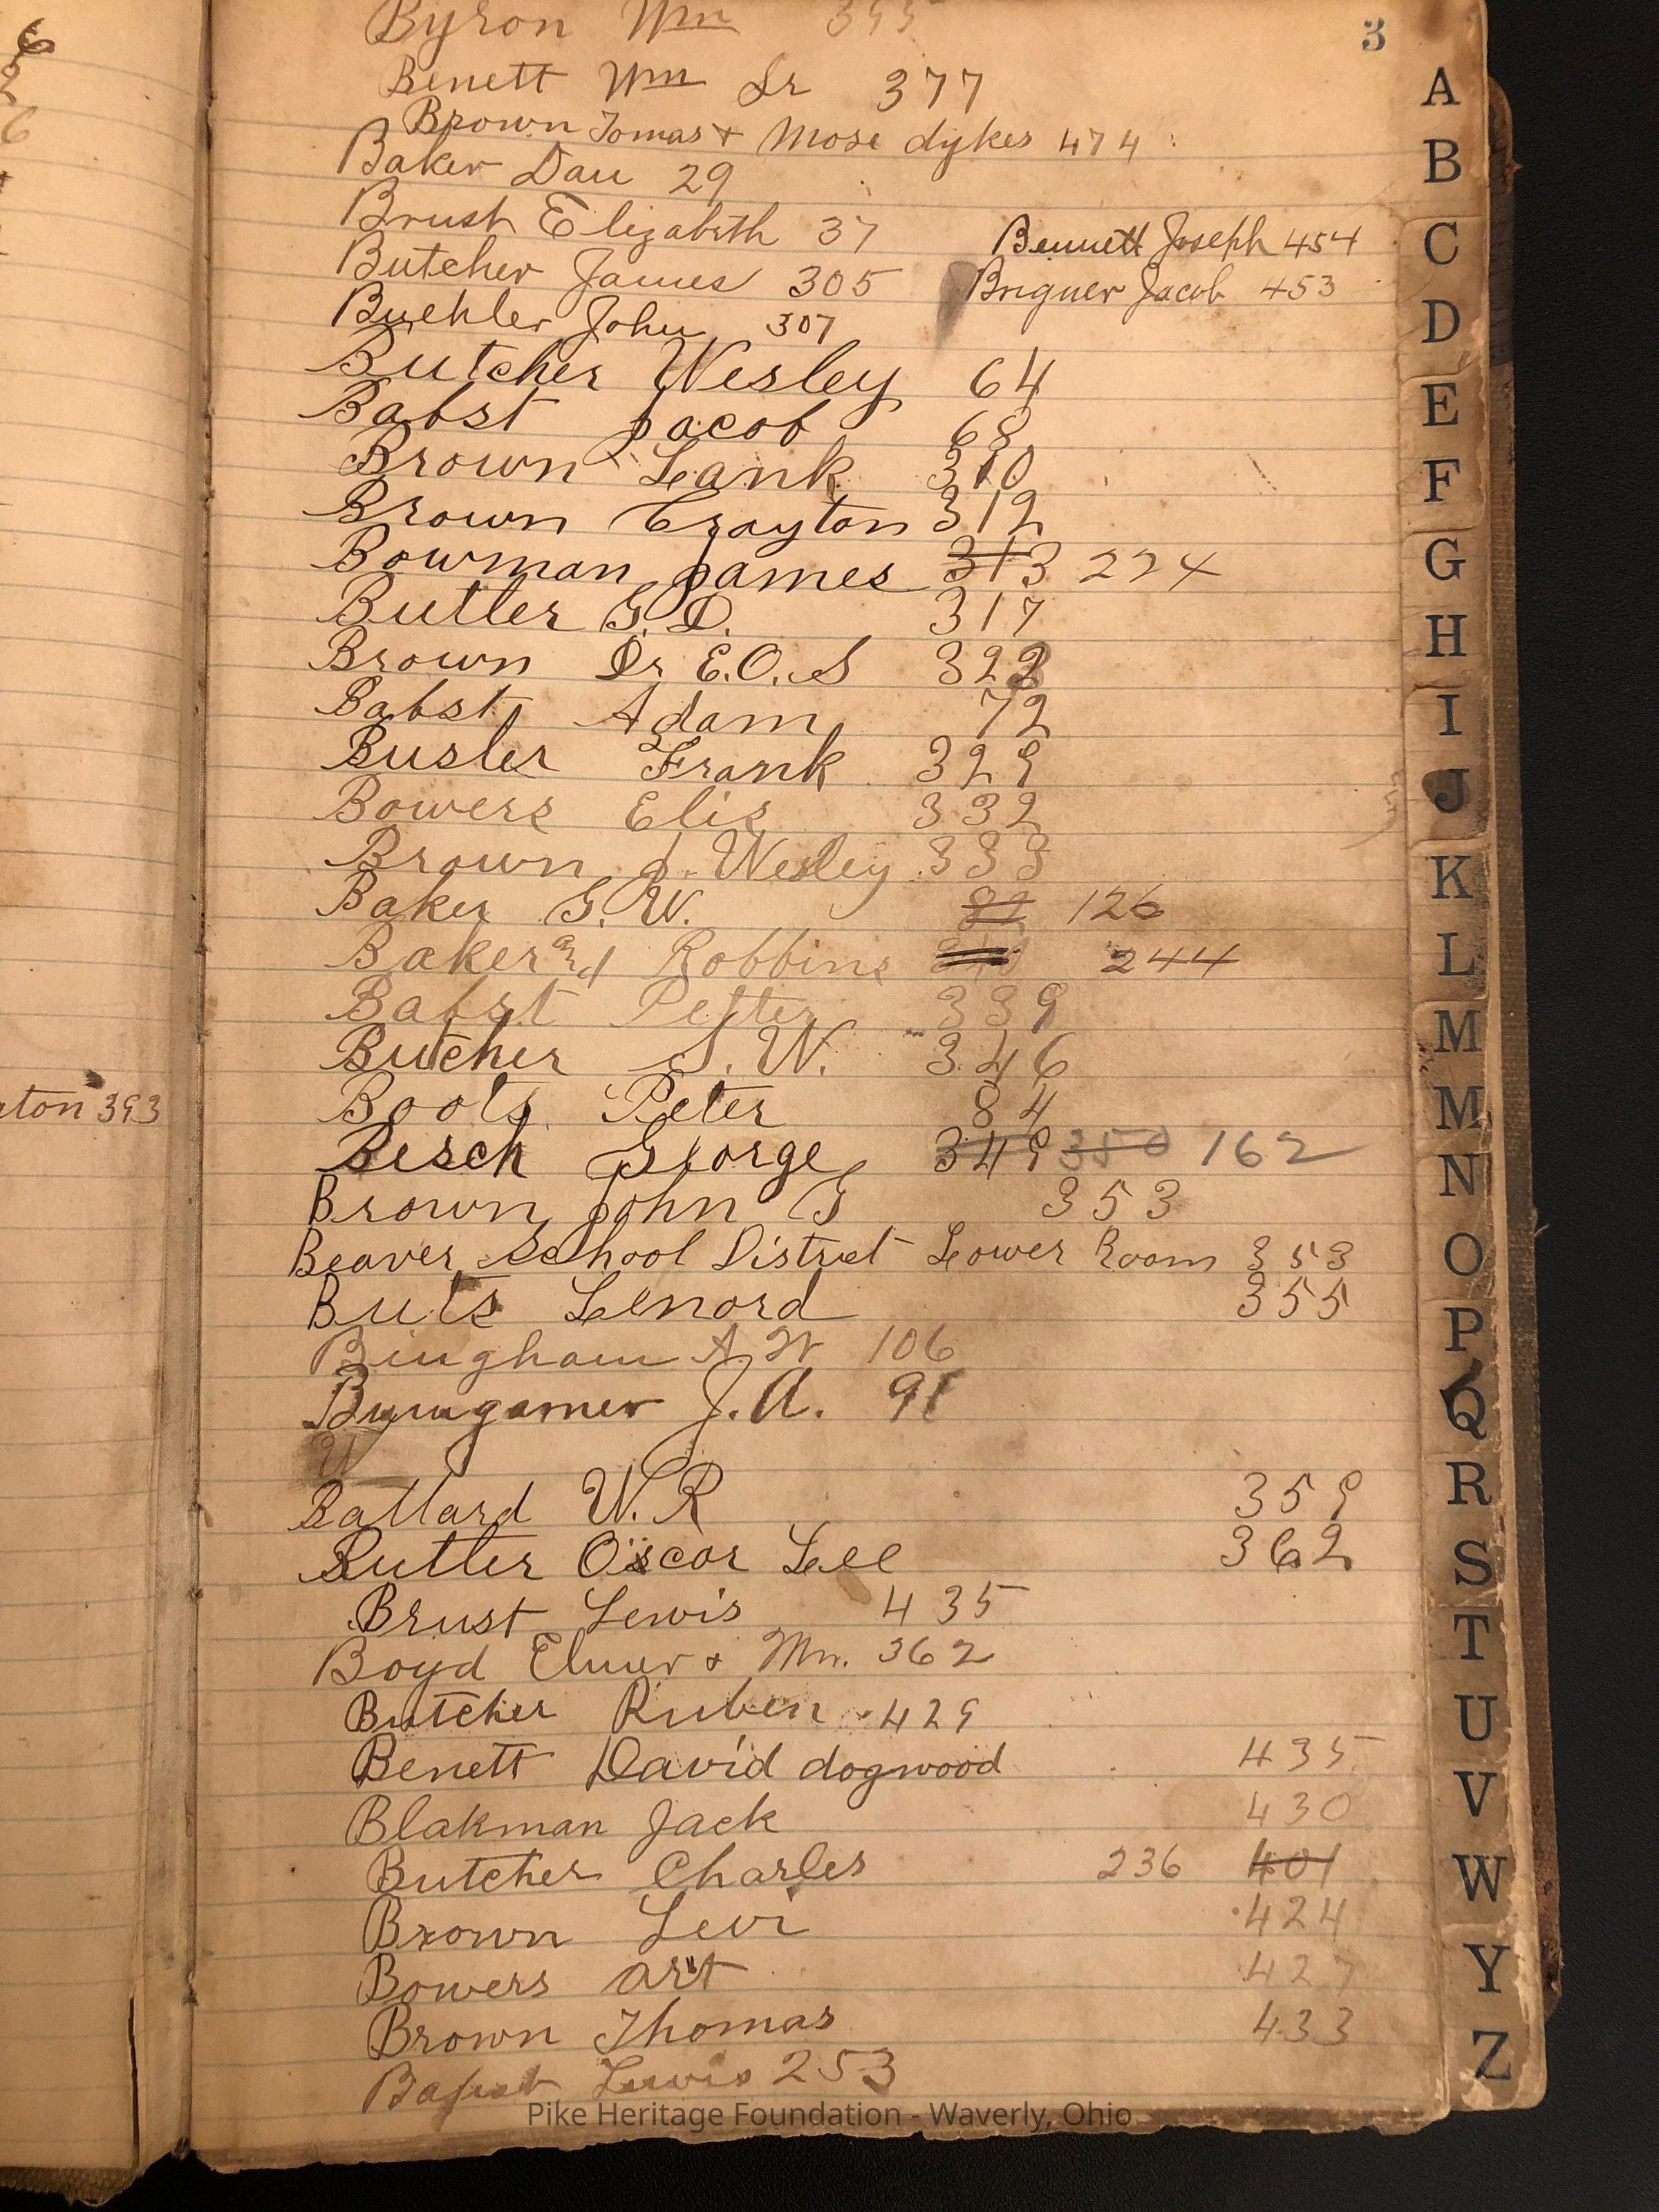 6
2
6
ton 393
3
Byron Wm 395
Benett Wm Sr 377
Brown Tomas + Mose dykes 474
Baker Dan 29
Brush Elizabeth 37
Bennett Joseph 454
Butcher James 305
Briguer Jacob 453
Buehler John 307
Butcher Wesley 64
Babst Jacob 68
Brown Leank 310
Brown Crayton 312
Bowman James 313 224
Butler G. D. 317
Brown Dr E.O.S 322
Babst Adam 72
Busler Frank 329
Bowers Elis 332
Brown J. Wesley 333
Baker G. W. 126
Baker and Robbins 244
Babst Petter 339
Butcher S. W. 346
Boots Peter 84
Besch George 349 350 162
Brown John G 353
Beaver School District Lower Room 353
Buts Lenord 355
Bingham A. W 106
Bumgarner J. A. 91
W
Ballard W. R 359
Butler Oscar Lee 362
Brust Lewis 435
Boyd Elmer + Mn. 362
Butcher Ruben 429
Benett David dogwood 435
Blakman Jack 430
Butcher Charles 236 401
Brown Levi 424
Bowers art 427
Brown Thomas 433
Babst Lewis 253
Pike Heritage Foundation - Waverly, Ohio
A
B
C
D
E
F
G
H
I
J
K
L
M
M
N
O
P
Q
R
S
T
U
V
W
Y
Z